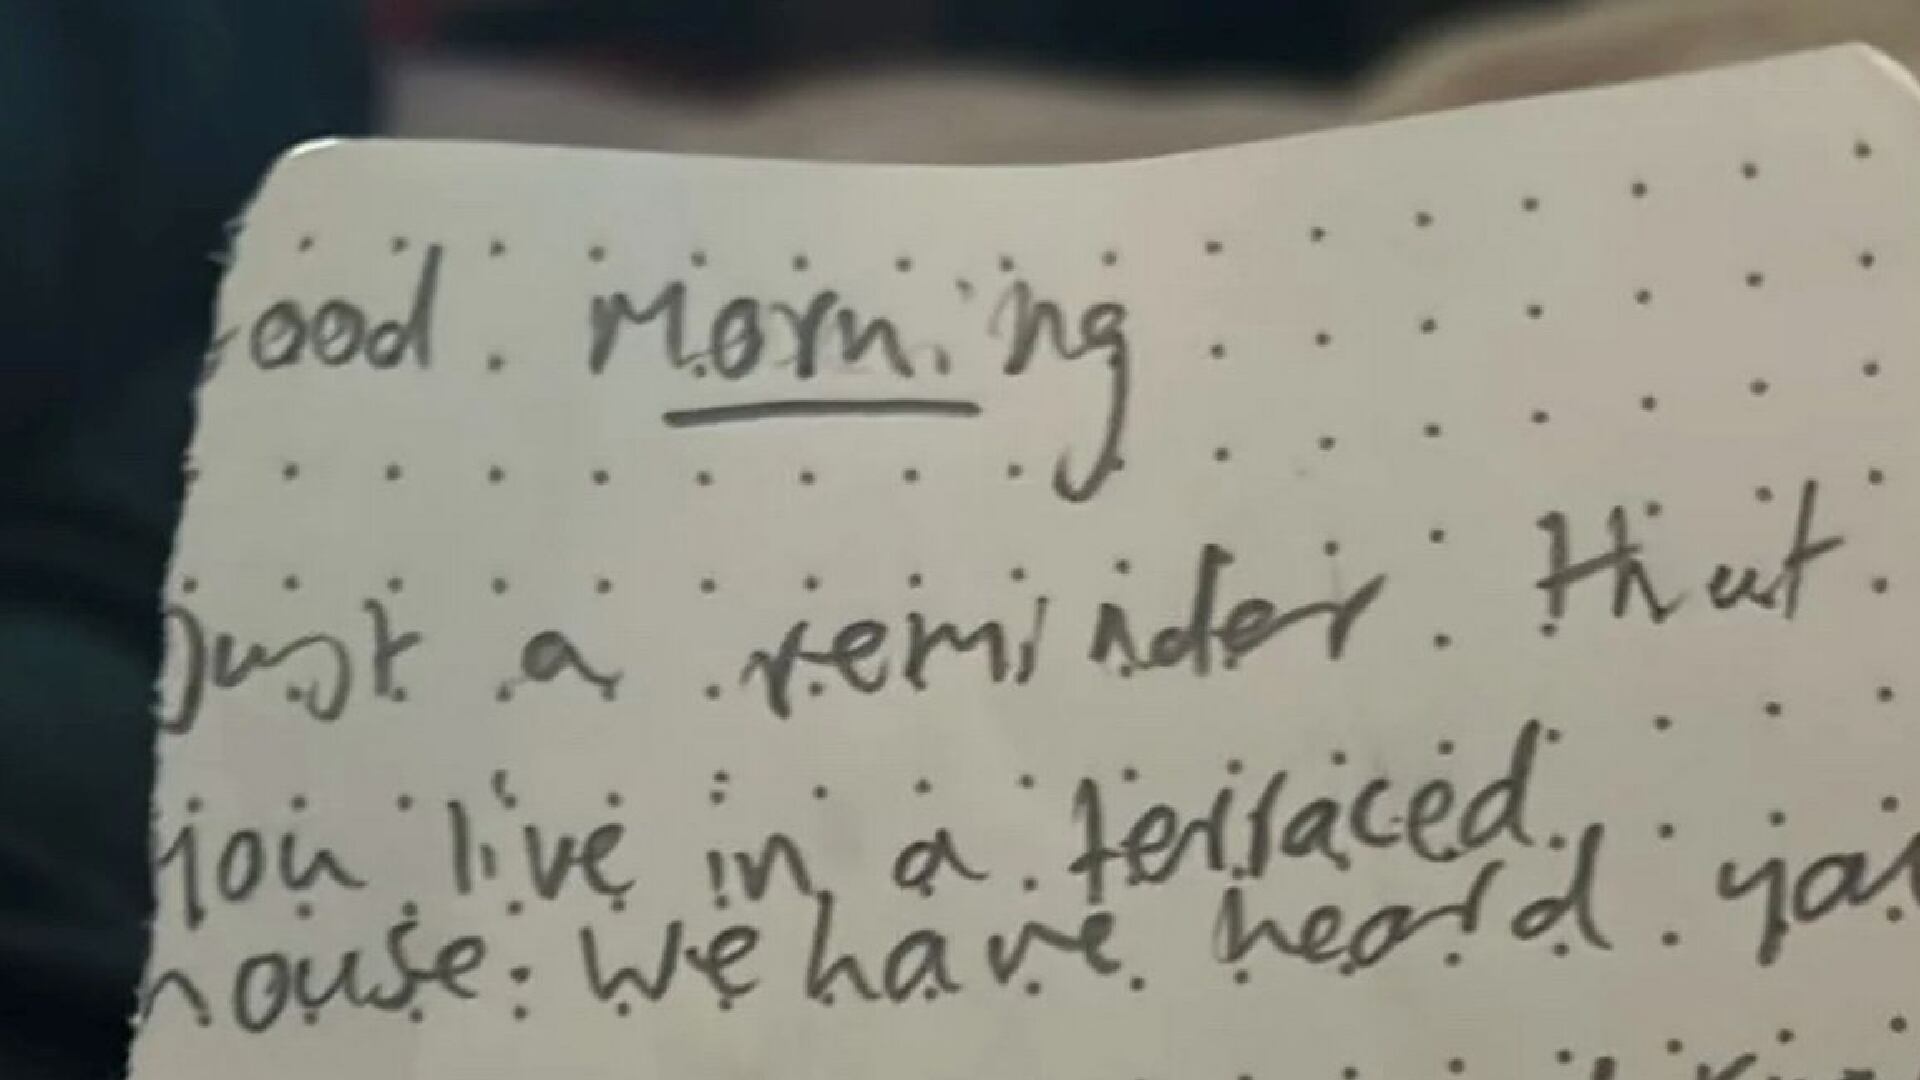 ood Morning
Just a reminder that
you live in a terraced
house. We have heard you